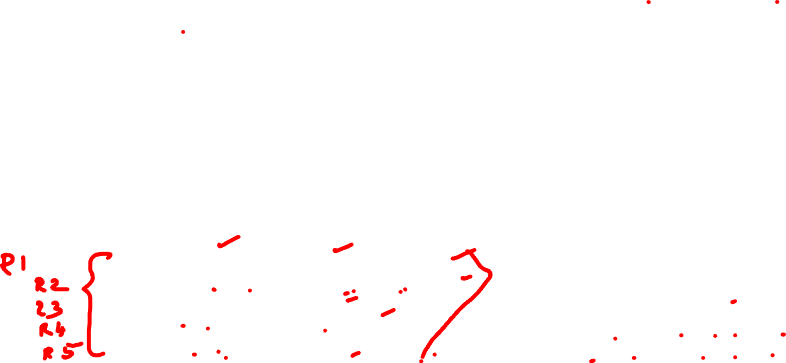 R1
R2
R3
R4
R5